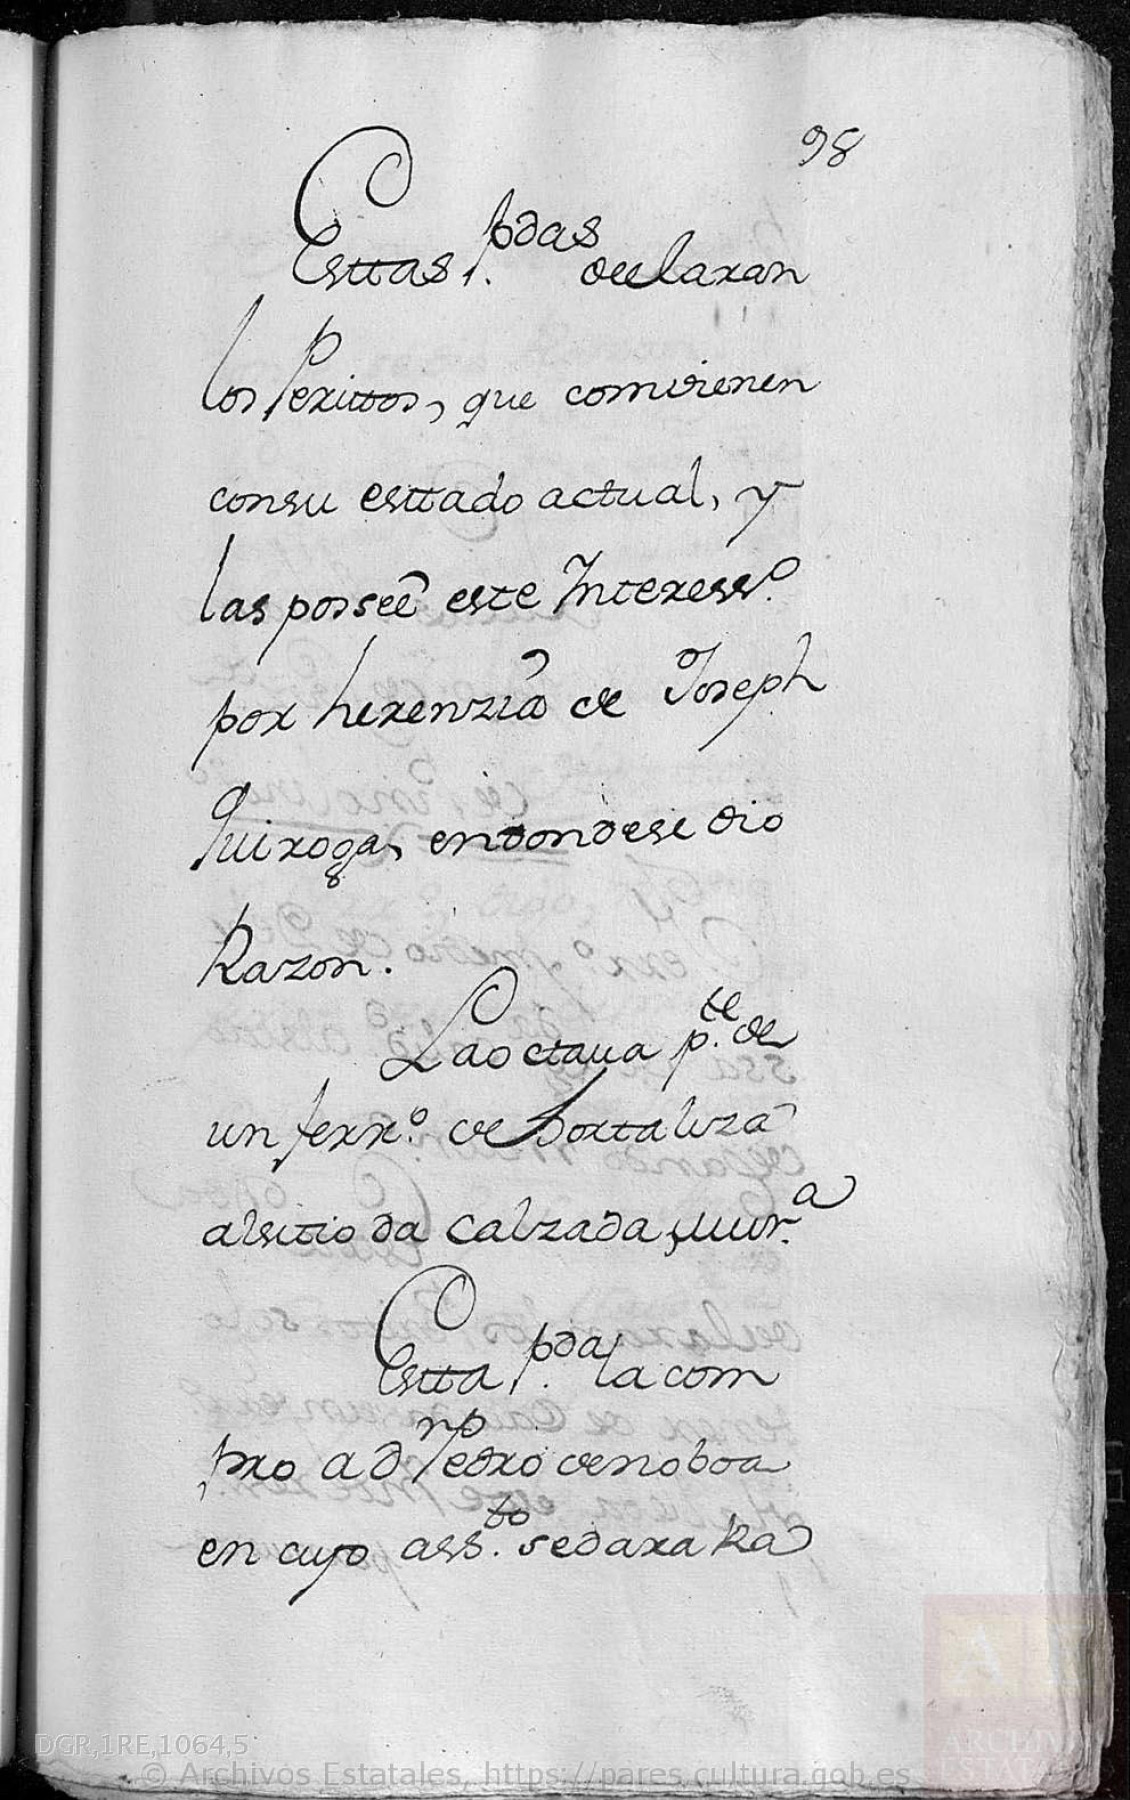 98
Esttas p.das declaran
los Perittos, que combienen
consu esttado actual, y
las posseê este Interess.o
por herenzia de Joseph
Quiroga, endondese dio
Razon.
La octaua p.te de
un ferr.o de hortaliza
alsitio da Calzada,
Estta p.da la com
pro a Dn Pedro de noboa
en cuyo ass.to sedara Ra
DGR,1RE,1064,5
© Archivos Estatales, https://pares.cultura.gob.es